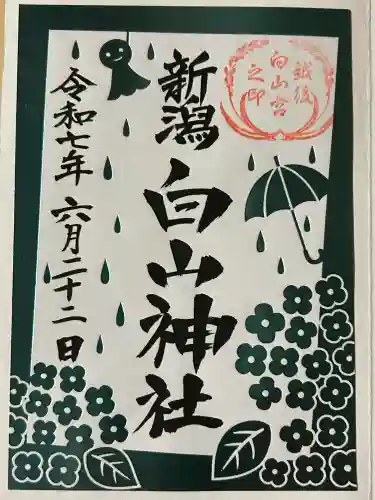 越後
白山宮
之印
新潟
白山神社
令和七年 六月二十二日